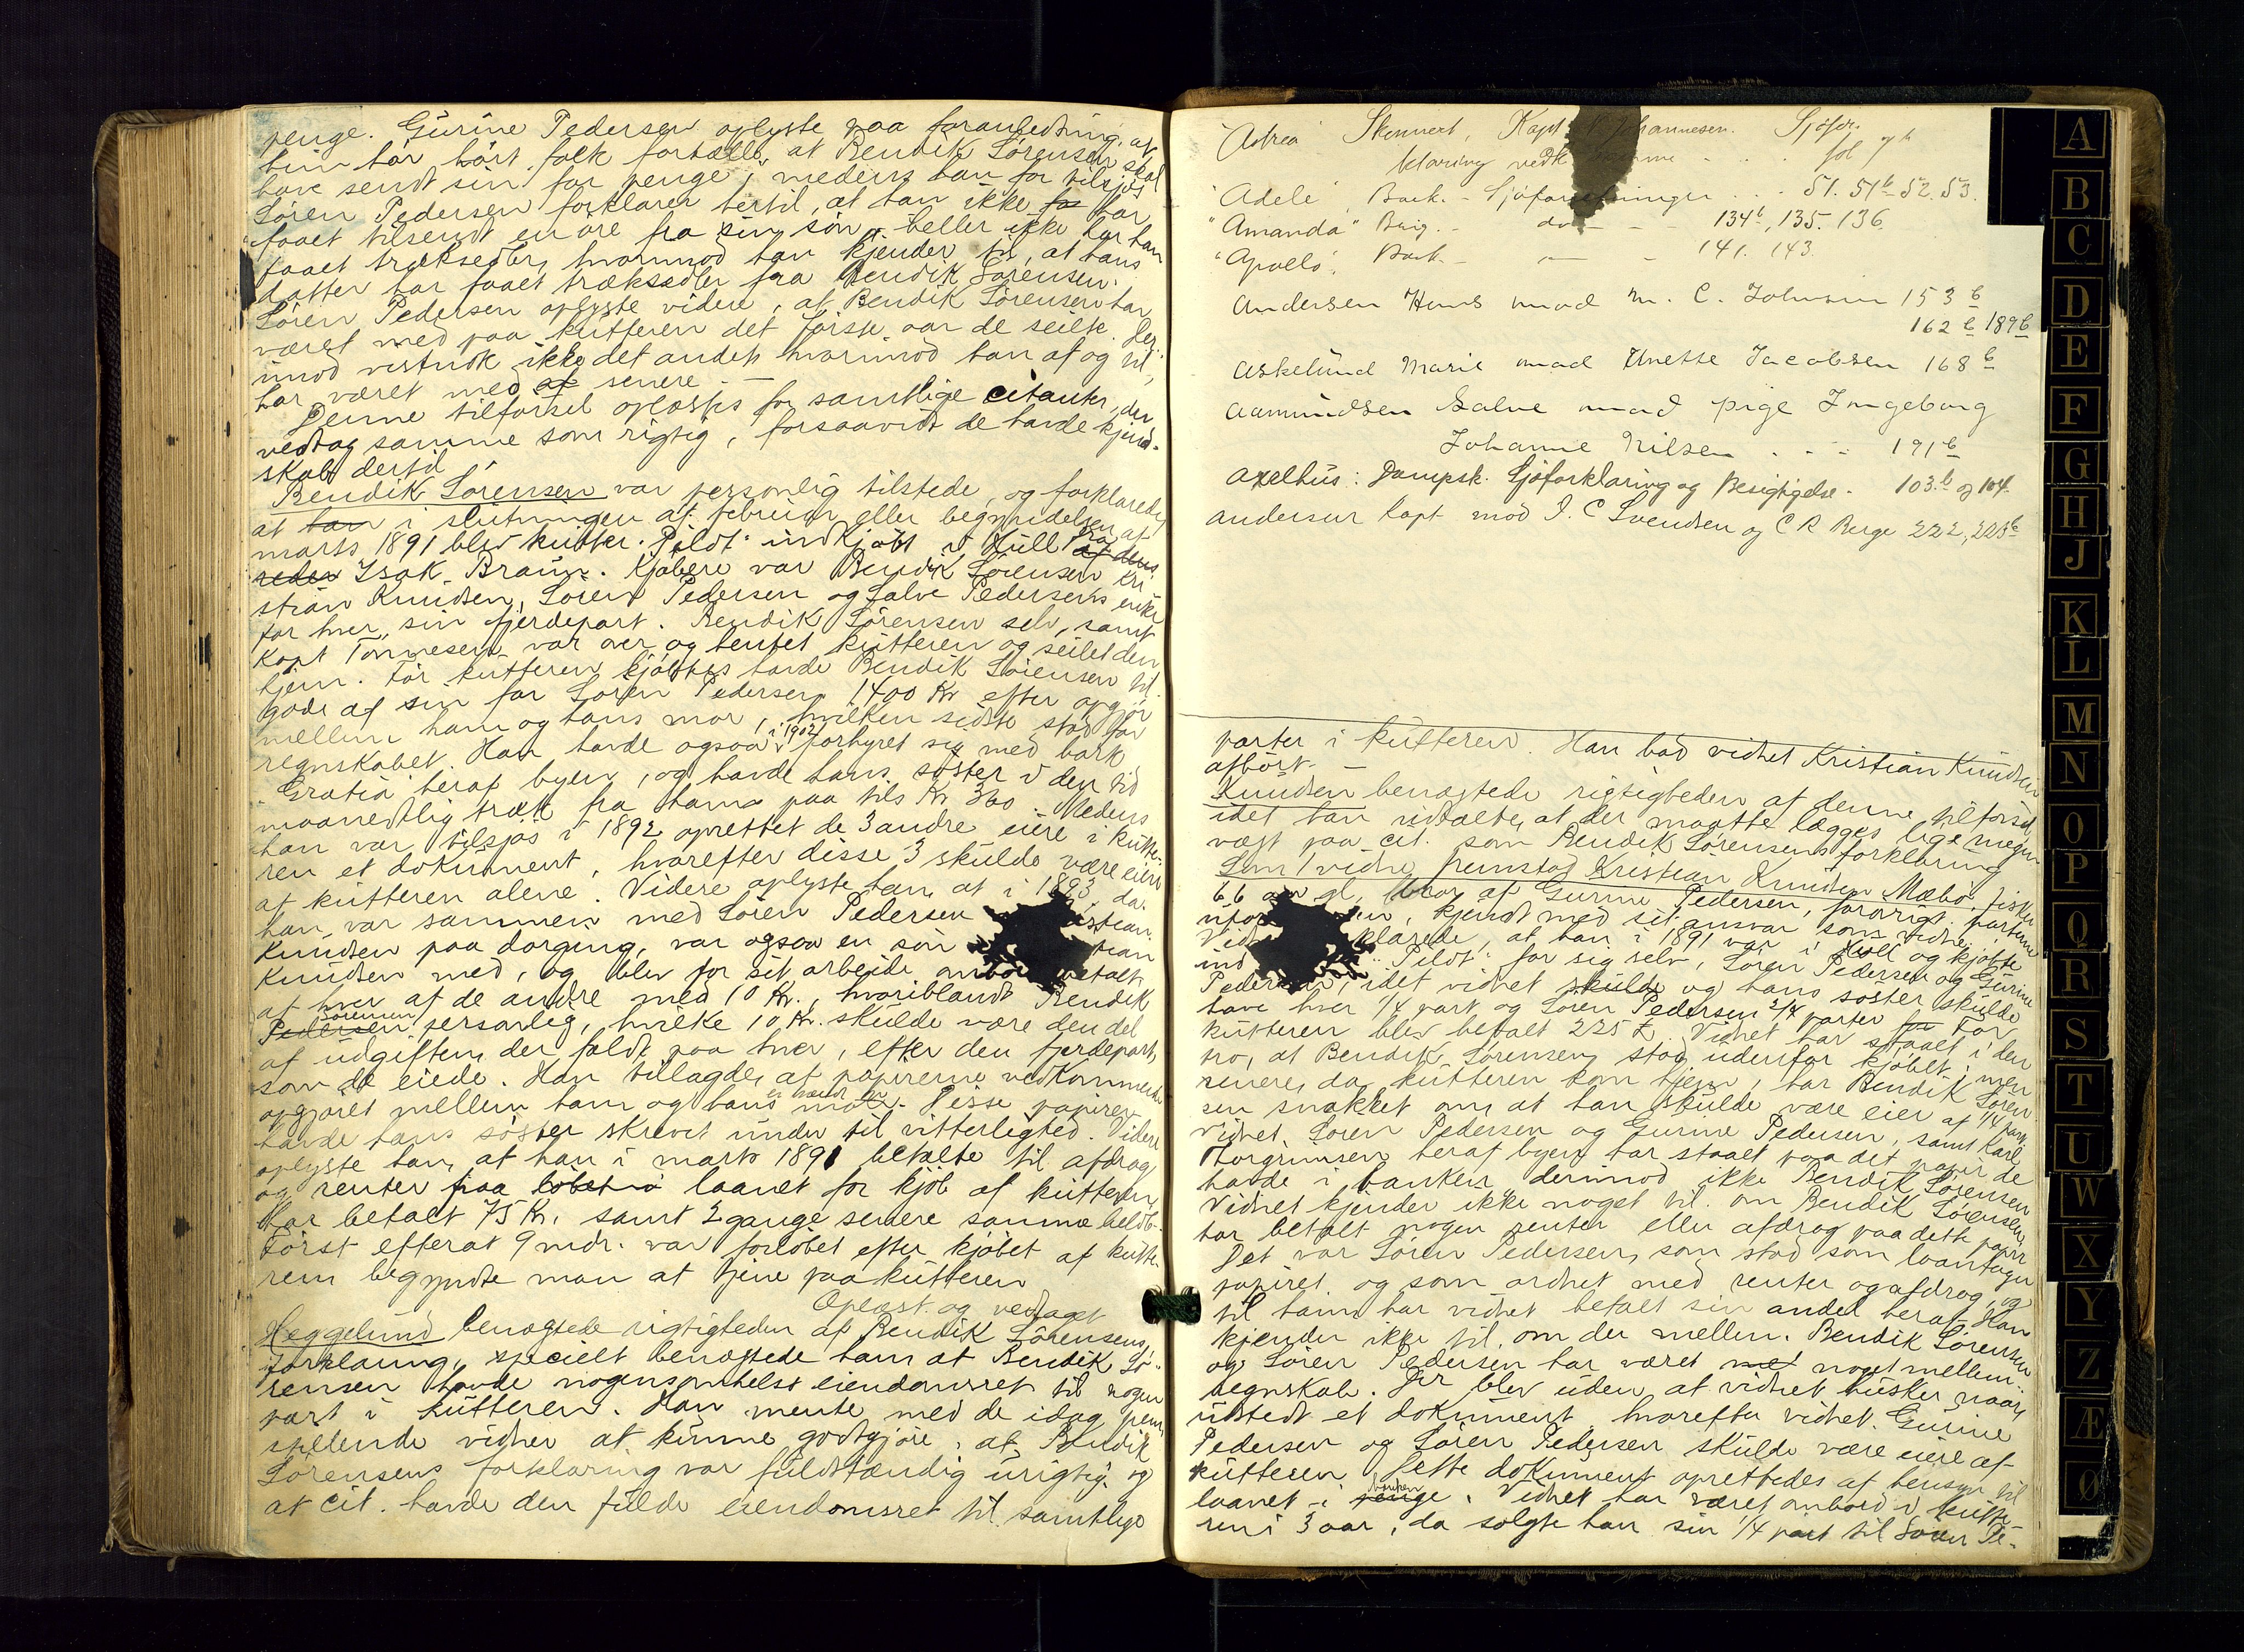 penge. Gurine Pedersen oplyste paa foranledning, at
hun har hört folk fortælle, at Bendik Sörensen skal
have sendt sin far penge, medens han for tilsjös
Sören Pedersen forklarer hertil, at han ikke har
faaet tilsendt en öre fra sin sön, heller ikke har han
faaet træksedler, hvorimod han kjender til, at hans
datter har faaet træksedler fra Bendik Sörensen.
Sören Pedersen oplyste videre, at Bendik Sörensen har
været med paa kutteren det förste aar de seilte. Der-
imod vistnok ikke det andet hvorimod han af og til
har været med af senere. —
Denne tilförsel oplæstes for samtlige citanter, der
vedtog samme som rigtig, forsaavidt de havde kjend-
skab dertil
Bendik Sörensen var personlig tilstede, og forklarede,
at han i slutningen af februar eller begyndelsen af
marts 1891 blev kutter "Pilot" indkjöbt i Hull fra af dens
reder Isak Braun. Kjöbere var Bendik Sörensen Kri-
stian Knudsen, Sören Pedersen og Salve Pedersens enke
for hver sin fjerdepart. Bendik Sörensen selv, samt
Kapt Tönnesen var over og hentet kutteren og seilet den
hjem. För kutteren kjöbtes havde Bendik Sörensen til-
gode af sin far Sören Pedersen 1400 Kr efter opgjör
mellem ham og hans mor, hvilken sidste stod for
regnskabet. Han havde ogsaa i 1902 forhyret sig med bark
"Gratia" heraf byen, og havde hans söster i den tid
maanedlig træk fra ham paa tils Kr 360. Medens
han var tilsjös i 1892 oprettet de 3 andre eiere i kutte-
ren et dokument, hvorefter disse 3 skulde være eiere
af kutteren alene. Videre oplyste han, at i 1893, da
han var sammen med Sören Pedersen
Knudsen paa dorging, var ogsaa en sön
Knudsen med, og blev for sit arbeide ombord betalt
af hver af de andre med 10 Kr., hvoriblandt Bendik
Pedersen Sörensen personlig, hvilke 10 Kr. skulde være den del
af udgiften, der faldt paa hver, efter den fjerdepart,
som de eiede. Han tillagde, at papirerne vedkommende
opgjöret mellem ham og hans mor. Disse papirer
havde hans söster skrevet under til vitterlighed. Videre
oplyste han, at han i marts 1891 betalte til afdrag
og renter paa laanet for kjöb af kutteren
Har betalt 75 Kr. samt 2 gange senere samme belöb.
Först efterat 9 mdr. var forlöbet efter kjöbet af kutte-
ren begyndte man at tjene paa kutteren
Oplæst og vedtaget
Heggelund benægtede rigtigheden af Bendik Sörensens
forklaring, specielt benægtede han at Bendik Sö-
rensen havde nogensomhelst eiendomsret til nogen
part i kutteren. Han mente med de idag frem-
stillende vidner at kunne godtgjöre, at Bendik
Sörensens forklaring var fuldstændig urigtig, og
at cit. havde den fulde eiendomsret til samtlige
"Astrea" Skonnert, Kapt Johannesen. Sjöfor-
klaring vedk
"Adele", Bark. - Sjöforklaringer . . . 51. 51b 52. 53.
"Amanda" Brig. - do — - - 134b, 135. 136.
"Apollo", Bark - — - 141. 143.
Andersen Hans mod M. C. Johnsen 153b
162b 189b
Askelund Marie mod Anette Jacobsen 168b
Aamundsen Salve mod pige Ingeborg
Johanne Nilsen . . - 191b
Axelhus: Dampsk. Sjöforklaring og Besigtigelse. 103b og 104.
Andersen Capt mod J. C Svendsen og C R Berge 222, 223b
parter i kutteren. Han bad vidnet Kristian Knudsen
afhört. —
Knudsen benægtede rigtigheden af denne tilförsel,
idet han udtalte, at der maatte lægges lige megen
vægt paa cit. som Bendik Sörensens forklaring
Som 1 vidne fremstod Kristian Knudsen Mæbö, fisker
66 aar gl, bror af Gurine Pedersen, forövrigt parterne
, kjendt med sit ansvar som vidne.
klarede, at han i 1891 var i Hull og kjöbte
"Pilot" for sig selv, Sören Pedersen og Gurine
Pedersen, idet vidnet skulde og hans söster skulde
have hver 1/4 part og Sören Pedersen 2/4 parter for För
kutteren blev betalt 225 £. Vidnet har staaet i den
tro, at Bendik Sörensen stod udenfor kjöbet, men
senere, da kutteren kom hjem, har Bendik Sören-
sen snakket om at han skulde være eier af 1/4 part.
Vidnet, Sören Pedersen og Gurine Pedersen, samt Karl
Torgrimsen heraf byen har staaet paa det papir de
havde i banken derimod ikke Bendik Sörensen
Vidnet kjender ikke noget til om Bendik Sörensen
har betalt nogen renter eller afdrag paa dette papir
Det var Sören Pedersen, som stod som laantager
papiret og som ordnet med renter og afdrag, og
til ham har vidnet betalt sin andel heraf. Han
kjender ikke til, om der mellem Bendik Sörensen
og Sören Pedersen har været noget mellem-
regnskab. Der blev uden at vidnet husker naar,
udstedt et dokument hvorefter vidnet Gurine
Pedersen og Sören Pedersen skulde være eiere af
kutteren Dette dokument oprettedes af hensyn til
laanet i penge banken. Vidnet har været ombord i kutte-
ren i 3 aar, da solgte han sin 1/4 part til Sören Pe-
A
B
C
D
E
F
G
H
J
K
L
M
N
O
P
Q
R
S
T
U
W
X
Y
Z
Æ
Ø